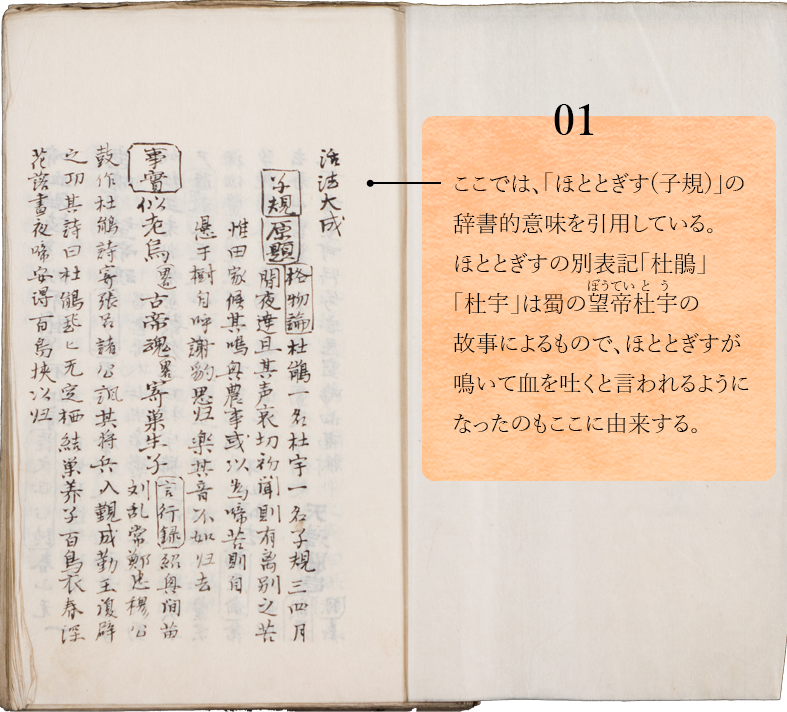 01
ここでは、「ほととぎす(子規)」の
辞書的意味を引用している。
ほととぎすの別表記「杜鵑」
「杜宇」は蜀の望帝杜宇の
ぼうてい と う
故事によるもので、ほととぎすが
鳴いて血を吐くと言われるように
なったのもここに由来する。
活法大成
子規 原題 格物論 杜鵑一名杜宇一名子規三四月
間夜達旦其声哀切初聞則有离别之苦
惟田家候其鳴興農事或以為啼苦則自
懸于樹自呼謝豹思归楽其音不如归去
事實 似老烏畧古帝魂畧寄巣生子 言行録 紹興間苗
刘乱常鄭忠穆公
鼓作杜鵑詩寄張呂諸公諷其将兵入覲成勤王復辟
之功其詩曰杜鵑飛〻无定栖結巣养子百鳥衣春深
花落晝夜啼安得百鳥挟以归